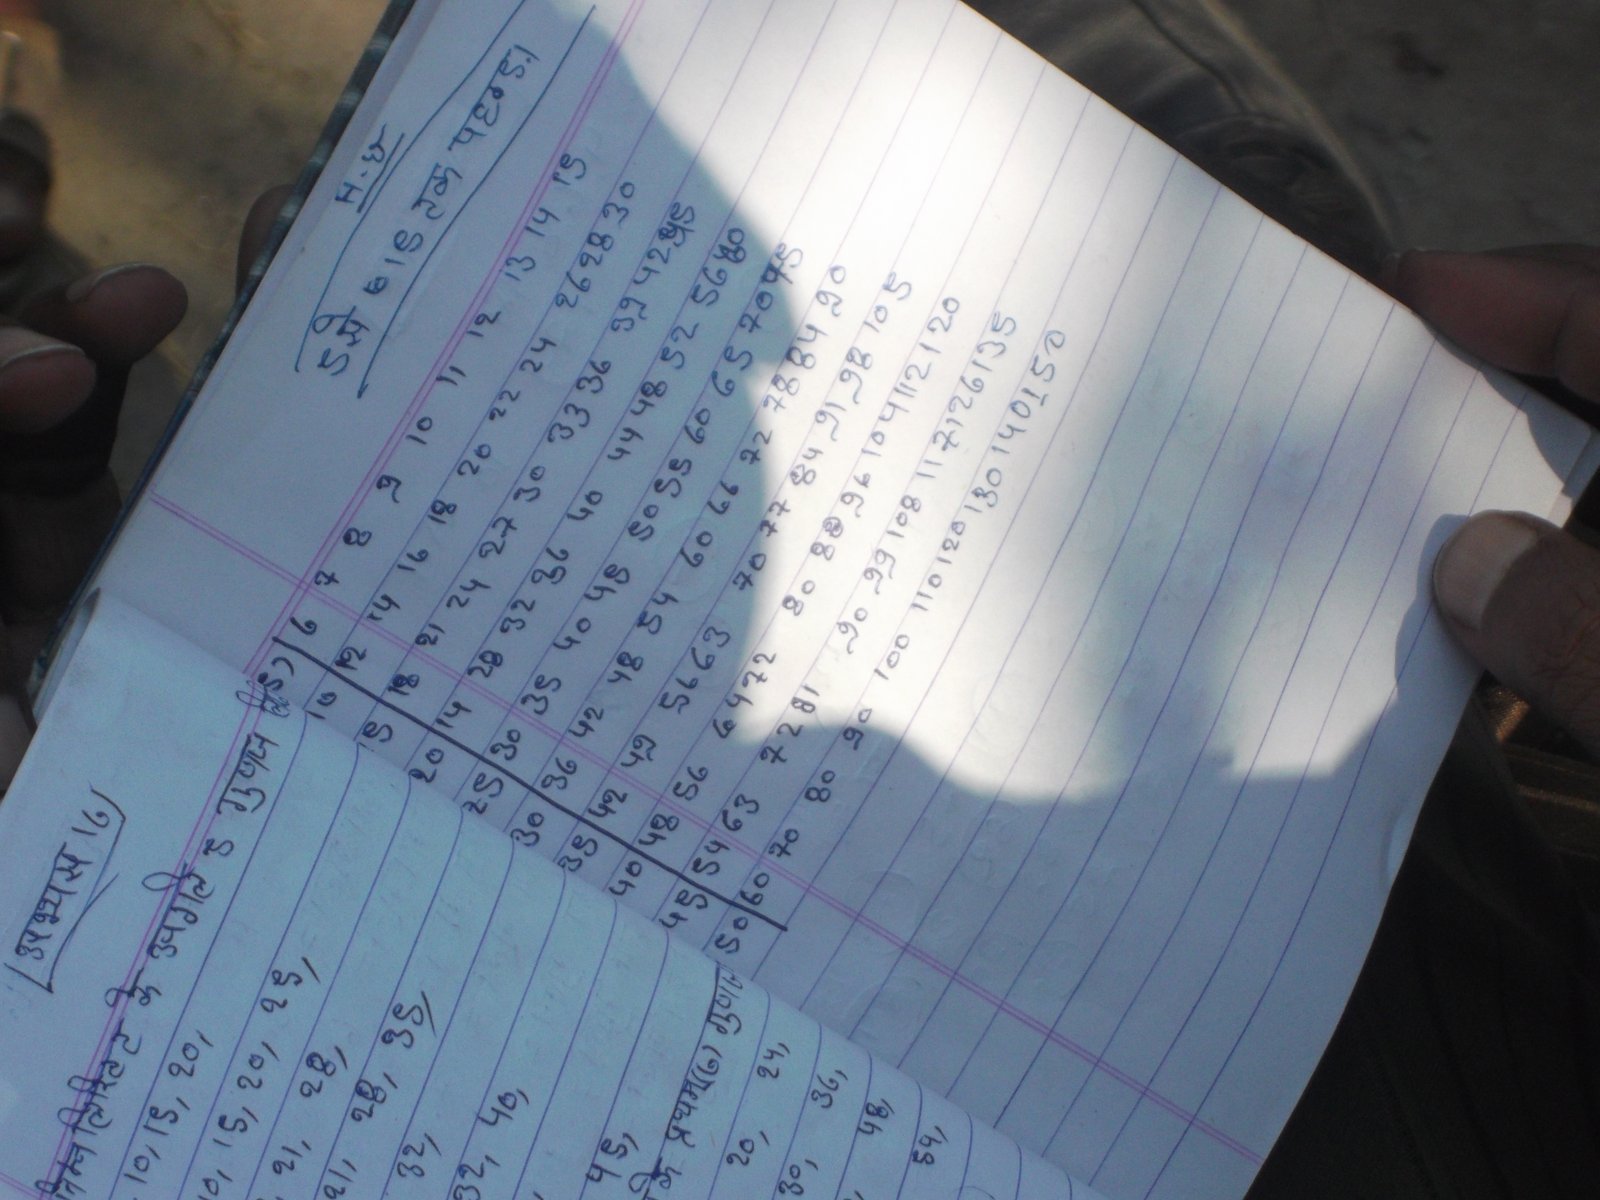 अभ्यास 16
निम्नलिखित के 5 गुणज
10, 15, 20,
10, 15, 20, 25,
21, 28,
21, 28, 35,
32,
32, 40,
45,
के प्रथम (6) गुणज
20, 24,
30, 36,
48,
54,
H.W
5 से 15 तक
5 6 7 8 9 10 11 12 13 14 15
10 12 14 16 18 20 22 24 26 28 30
5 18 21 24 27 30 33 36 39 42 45
20 14 28 32 36 40 44 48 52 56 60
25 30 35 40 45 50 55 60 65 70 75
30 36 42 48 54 60 66 72 78 84 90
35 42 49 56 63 70 77 84 91 98 105
40 48 56 64 72 80 88 96 104 112 120
45 54 63 72 81 90 99 108 117 126 135
50 60 70 80 90 100 110 120 130 140 150